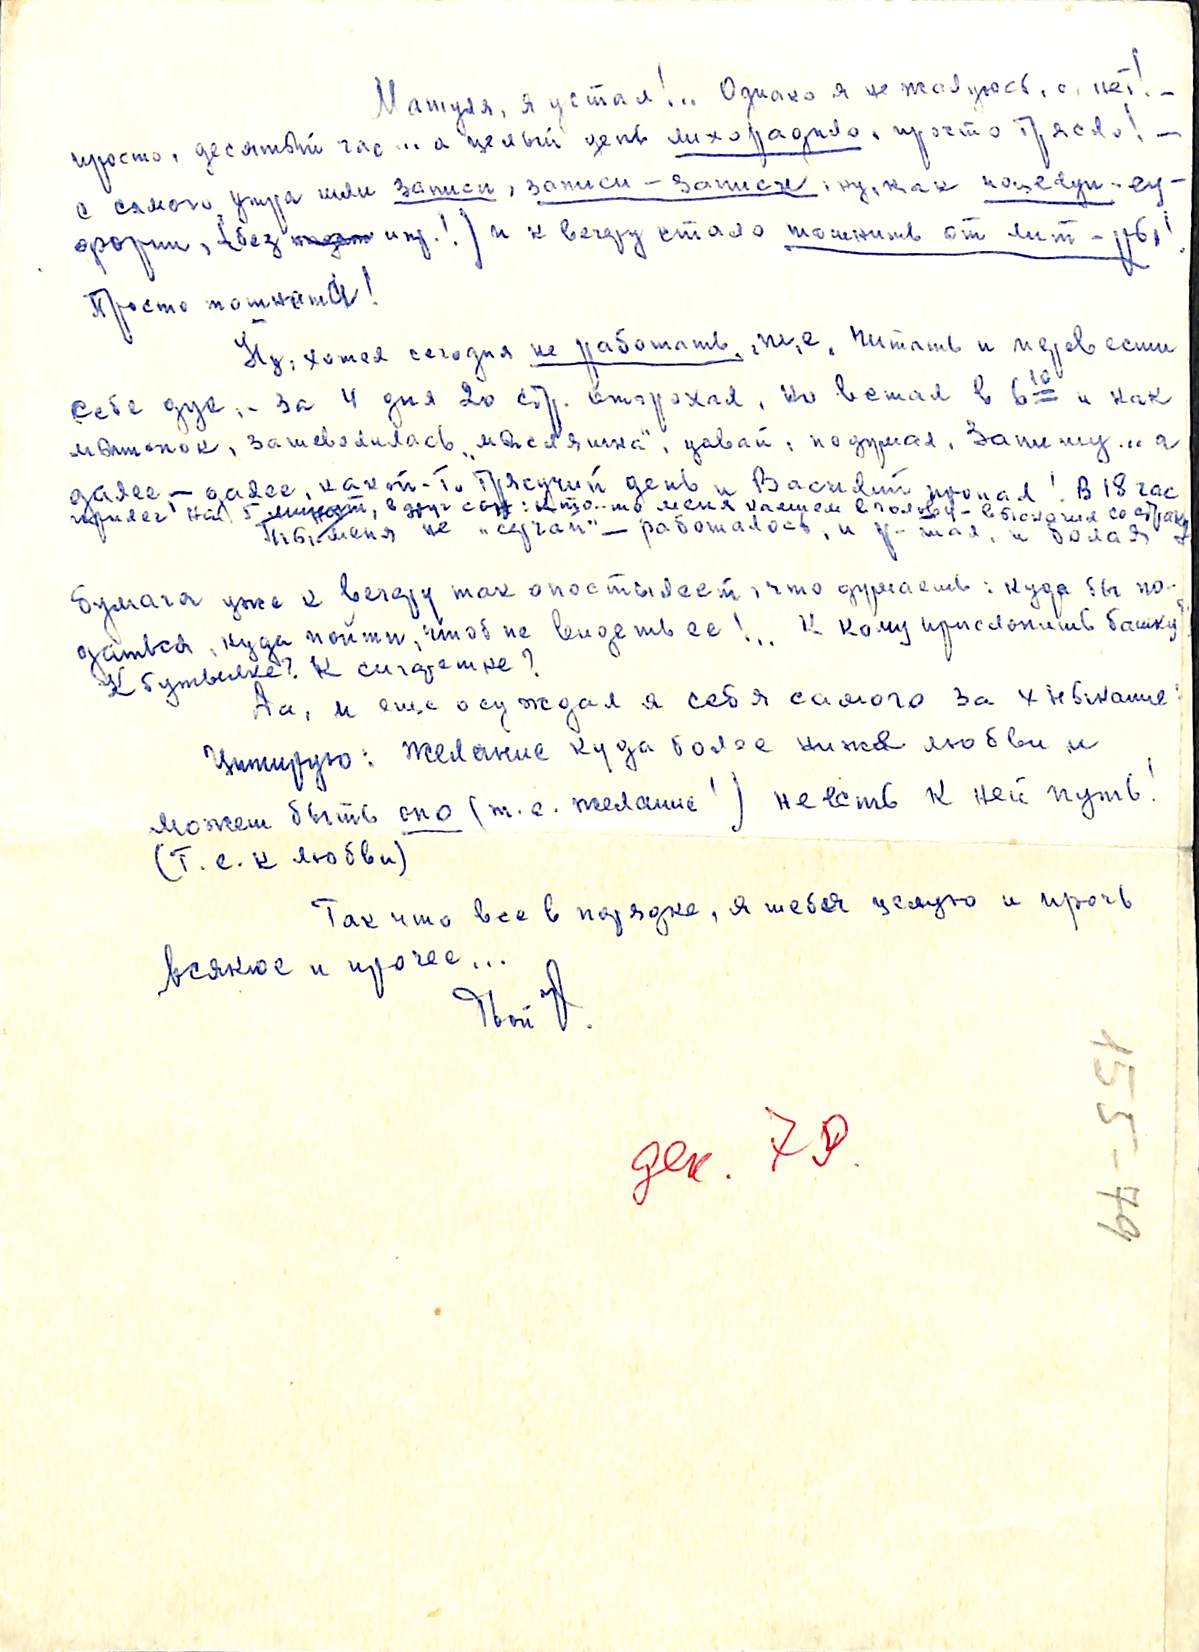 Матуля, я устал!.. Однако я не жалуюсь, о, нет! –
просто, десятый час... а целый день лихорадило, просто трясло! –
с самого утра шли записи, записи – записи, ну, как поцелуи – эу-
фории, (без инр.!) и к вечеру стало тошнить от лит-ры!
Просто тошнить!
Ну, хотел сегодня не работать, т.е. читать и перевести
себе дух, – за 4 дня 20 стр. отгрохал, но встал в 6 10 и как
мотылок, зашевелилась „мыслишка", давай, подумал, запишу... а
далее – далее, какой-то трясучий день и Василий пропал! В 18 час
прилег на 5 минут, вдруг сон: кто-то меня камнем в голову – вскочил со страху
Ты меня не „ругай" – работалось, и у-тал, и болая
бумага уже к вечеру так опостылеет, что думаешь: куда бы по-
даться, куда пойти, чтоб не видеть ее!.. К кому прислонить башку?
К бутылке? К сигаретке?
Аа, и еще осуждал я себя самого за хныканье:
Цитирую: Желание куда более ниже любви и
может быть оно (т.е. желание!) не есть к ней путь!
(т.е. к любви)
Так что все в порядке, я тебя целую и прочь
всякое и прочее...
Твой
дек. 79.
155-79